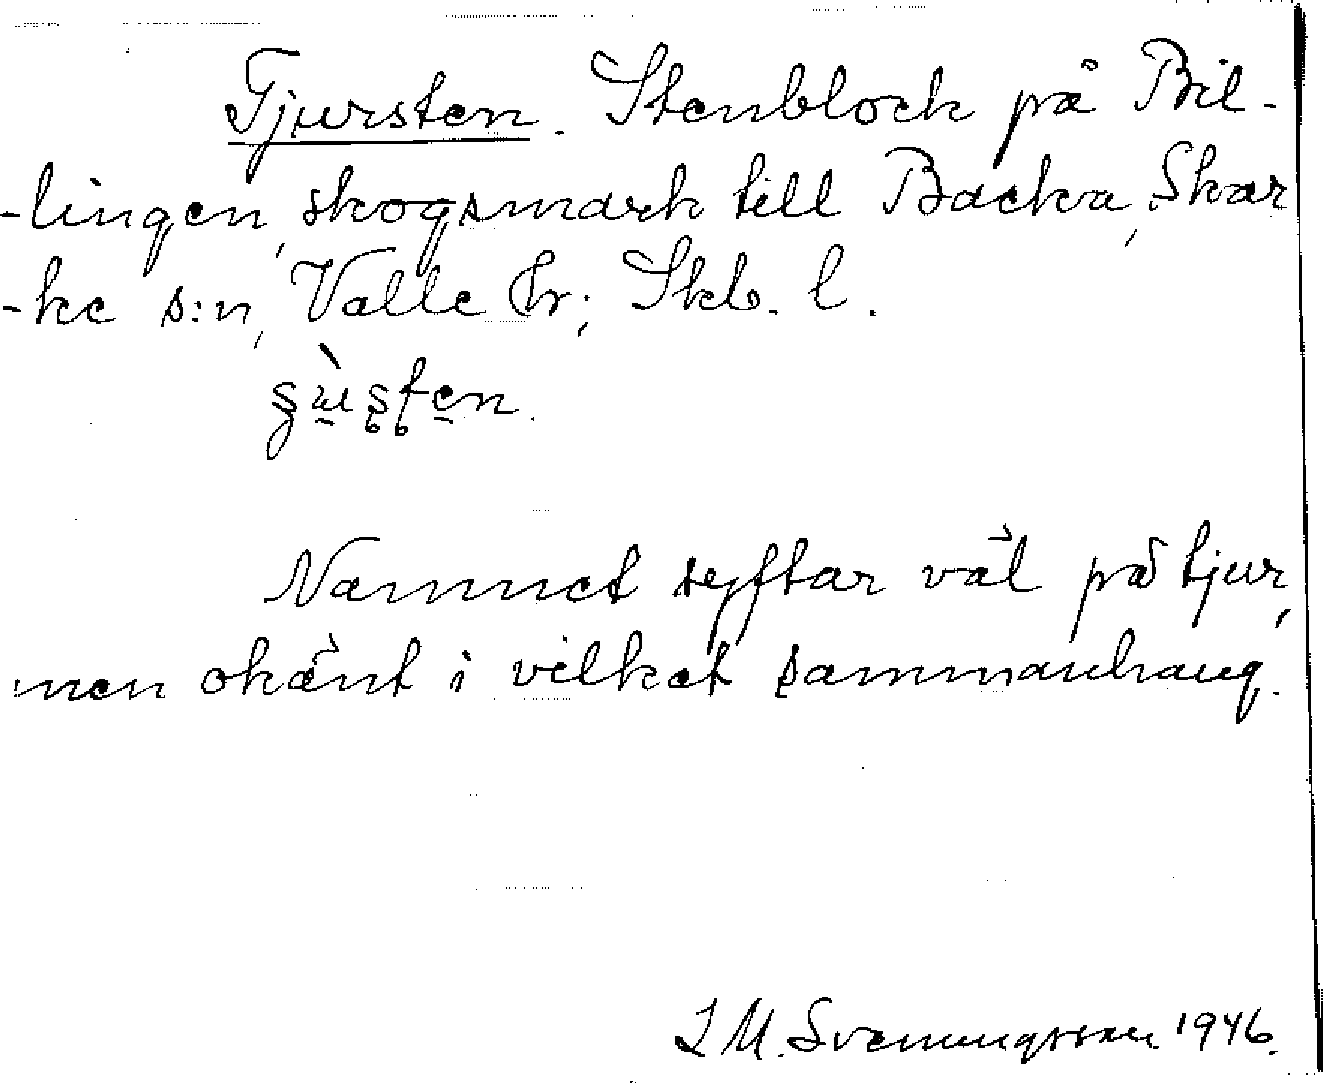 Tjursten. Stenblock på Bil-
-lingen, skogsmark till Backa, Skar
-ke s:n, Valle hr; Skb. l.
Namnet syftar väl på tjur,
men okänt i vilket sammanhang.
I M. Svenungsson 1946.